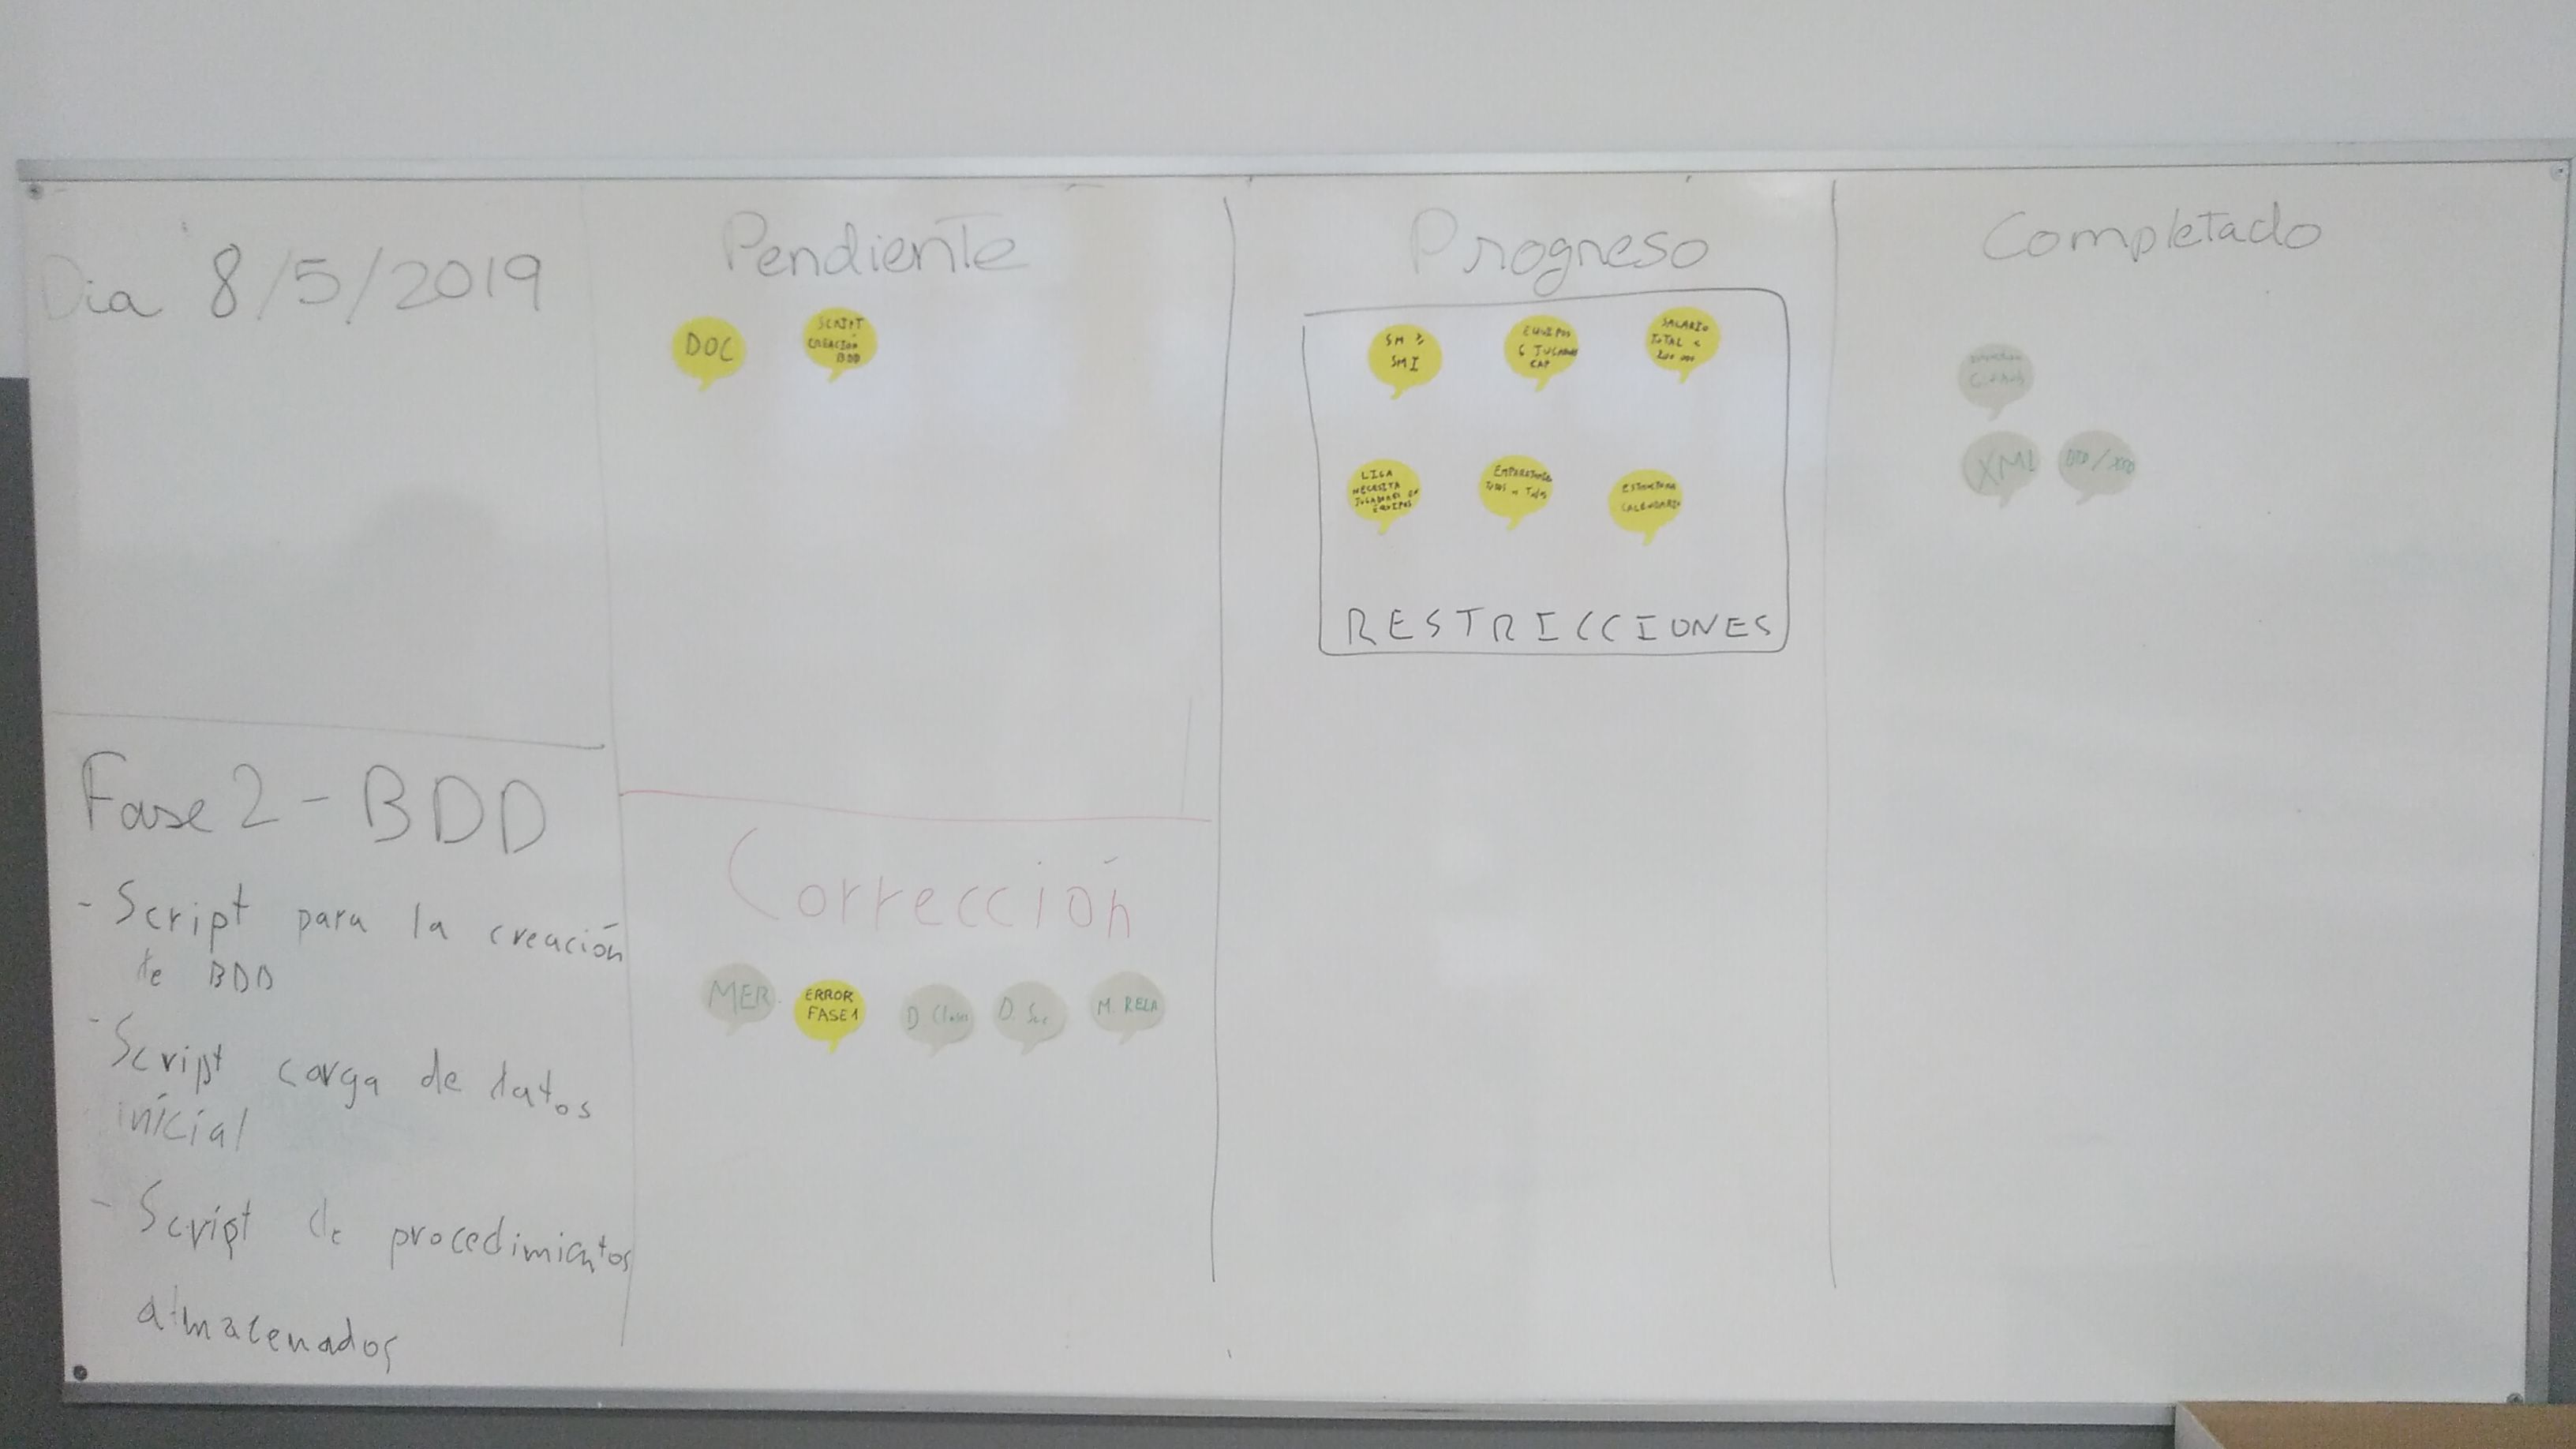 Dia 8/5/2019
Fase 2 - BDD
- Script para la creación
de BDD
- Script carga de datos
inícial
- Script de procedimientos
almacenados
Pendiente
DOC
SCRIPT
CREACIÓN
BDD
Corrección
MER
ERROR
FASE 1
D. Clases
D.
M. RELA
Progreso
SM ≥
SMI
EQUIPOS
6 JUGADORES
CAP
SALARIO
TOTAL <
200 m
LIGA
NECESITA
JUGADORES EN
EQUIPOS
TODOS a TODOS
ESTRUCTURA
CALENDARIO
RESTRICCIONES
Completado
XML
DTD/XSD